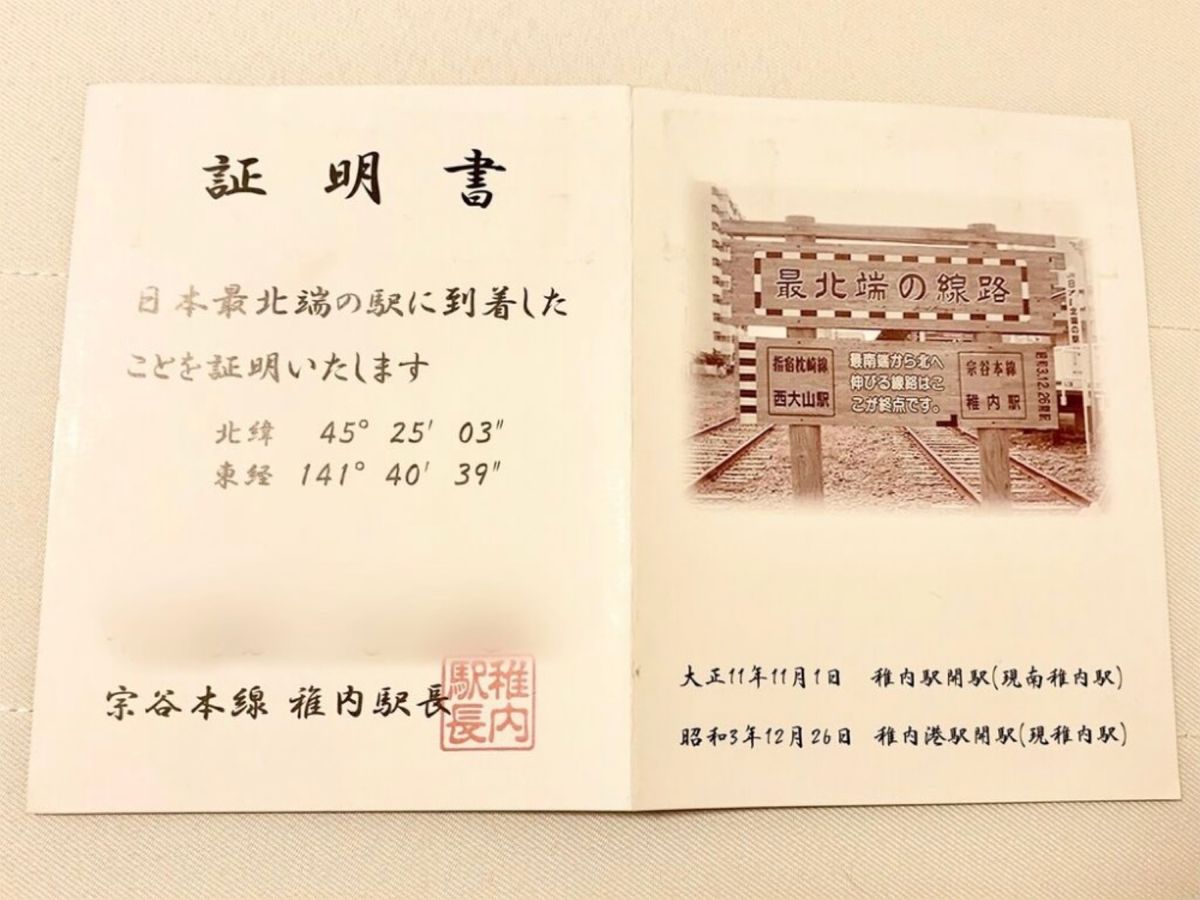 証明書
日本最北端の駅に到着した
ことを証明いたします
北緯 45° 25′ 03″
東経 141° 40′ 39″
宗谷本線 稚内駅長
稚内
駅長
最北端の線路
指宿枕崎線
西大山駅
最南端から北へ
伸びる線路はこ
こが終点です。
宗谷本線
稚内駅
昭和3.12.26開駅
大正11年11月1日 稚内駅開駅(現南稚内駅)
昭和3年12月26日 稚内港駅開駅(現稚内駅)